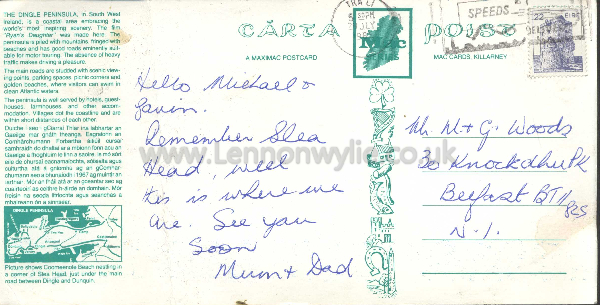 THE DINGLE PENINSULA, in South West
Ireland, is a coastal area embracing the
world's most inspiring scenery. The film
"Ryan's Daughter" was made here. The
peninsula is pied with mountains, fringed with
beaches and has good roads eminently suit-
able for motor touring. The absence of heavy
traffic makes driving a pleasure.
The main roads are studded with scenic view-
ing points, parking spaces, picnic corners and
golden beaches, where visitors can swim in
clean Atlantic waters.
The peninsula is well served by hotels, guest-
houses, farmhouses and other accom-
modation. Villages dot the coastline and are
within short distances of each other.
DINGLE PENINSULA
Picture shows Coomenole Beach nestling in
a corner of Slea Head, just under the main
road between Dingle and Dunquin.
CÁRTA POIST
Mac
A MAXIMAC POSTCARD
MAC CARDS, KILLARNEY
SPEEDS
22 EIRE
Hello Michael &
Gavin.
Remember Slea
Head, well
this is where we
are. See you
Soon
Mum & Dad
Mr M & G. Woods
30 Knockdhu Pk
Belfast BT11
N.I.
www.Lennonwylie.co.uk